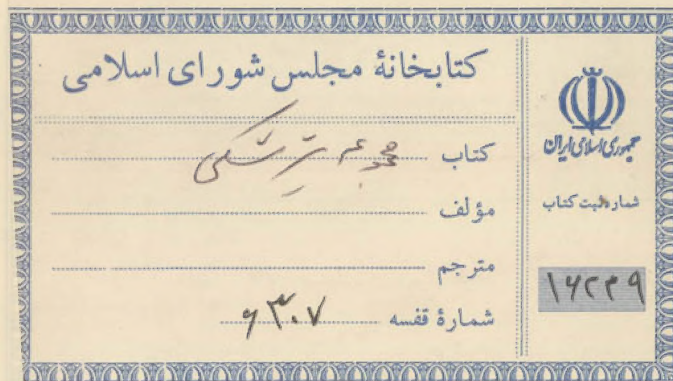 کتابخانهٔ مجلس شورای اسلامی
کتاب مجموعه پزشکی
مؤلف
مترجم
شمارهٔ قفسه ۶۳۰۷
جمهوری اسلامی ایران
شماره ثبت کتاب
۱۶۲۳۹